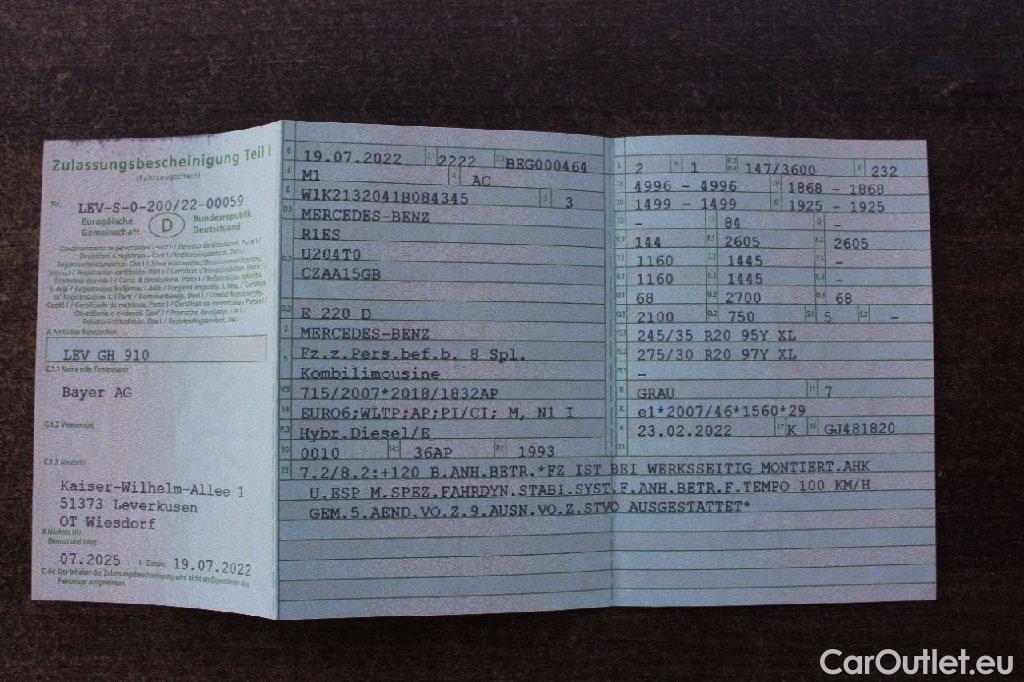 Zulassungsbescheinigung Teil I
(Fahrzeugschein)
Nr. LEV-S-0-200/22-00059
Europäische Gemeinschaft D Bundesrepublik Deutschland
LEV GH 910
C.1.1 Name oder Firmenname
Bayer AG
C.1.2 Vorname(n)
C.1.3 Anschrift
Kaiser-Wilhelm-Allee 1
51373 Leverkusen
OT Wiesdorf
07.2025 I Datum: 19.07.2022
C.4c Der Inhaber der Zulassungsbescheinigung wird nicht als Eigentümer des
Fahrzeugs ausgewiesen.
B 19.07.2022 2.1 2222 2.2 BEG000464
J M1 4 AC
E W1K2132041B084345 3 3
D.1 MERCEDES-BENZ
R1ES
D.2 U204T0
CZAA15GB
D.3 E 220 D
2 MERCEDES-BENZ
5 Fz.z.Pers.bef.b. 8 Spl.
Kombilimousine
V.9 715/2007*2018/1832AP
14 EURO6;WLTP;AP;PI/CI; M, N1 I
P.3 Hybr.Diesel/E
10 0010 14.1 36AP P.1 1993
L 2 9 1 P.2 P.4 147/3600 T 232
18 4996 - 4996 19 1868 - 1868
20 1499 - 1499 G 1925 - 1925
12 - 13 84 Q -
V.7 144 F.1 2605 F.2 2605
7.1 1160 7.2 1445 7.3 -
8.1 1160 8.2 1445 8.3 -
U.1 68 U.2 2700 U.3 68
O.1 2100 O.2 750 S.1 5 S.2 -
15.1 245/35 R20 95Y XL
15.2 275/30 R20 97Y XL
15.3 -
R GRAU 11 7
K e1*2007/46*1560*29
6 23.02.2022 17 K 16 GJ481820
21
22 7.2/8.2:+120 B.ANH.BETR.*FZ IST BEI WERKSSEITIG MONTIERT.AHK
U.ESP M.SPEZ.FAHRDYN.STABI.SYST.F.ANH.BETR.F.TEMPO 100 KM/H
GEM.5.AEND.VO.Z.9.AUSN.VO.Z.STVO AUSGESTATTET*
CarOutlet.eu